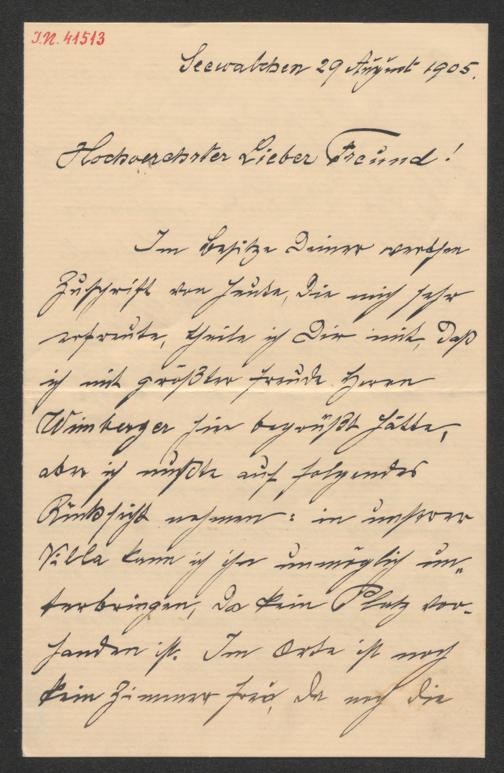 I.N. 41513
Seewalchen 29 August 1905.
Hochverehrter Lieber Freund!
Im Besitze Deiner werthen
Zuschrift von heute, die mich sehr
erfreute, theile ich Dir mit, daß
ich mit größter Freude Herrn
Wimberger hier begrüßt hätte,
aber ich mußte auf folgendes
Rücksicht nehmen: in unserer
Villa kann ich ihn unmöglich un„
terbringen, da kein Platz vor-
handen ist. Im Orte ist noch
kein Zimmer frei, da noch die